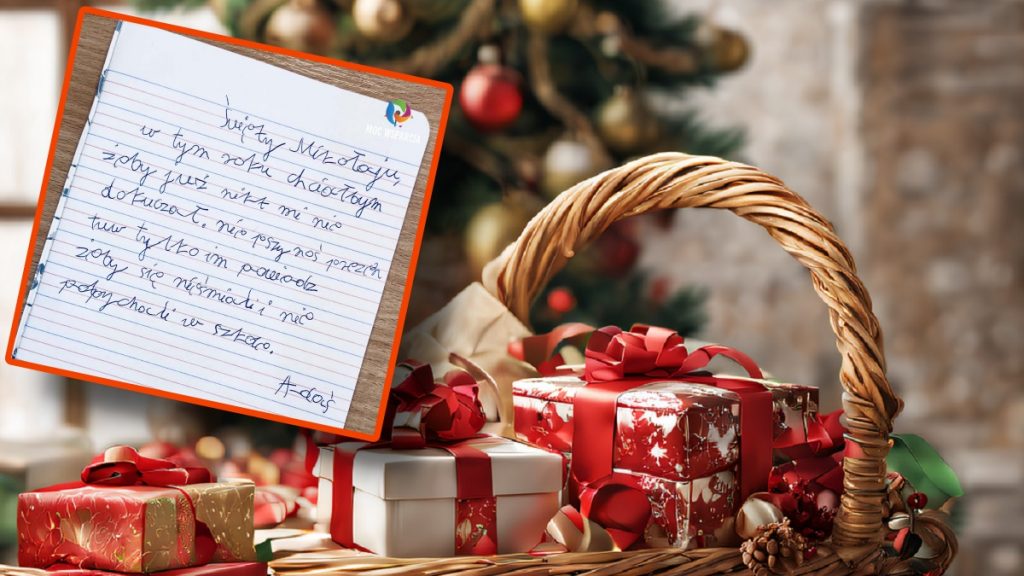 Święty Mikołaju,
w tym roku chciałbym
żeby już nikt mi nic
dokuczał. nie pszynoś prezen
tuw tylko im powiedz
żeby się nieśmiali i nie
popychacli w szkole.
A-daś
MOC WSPARCIA